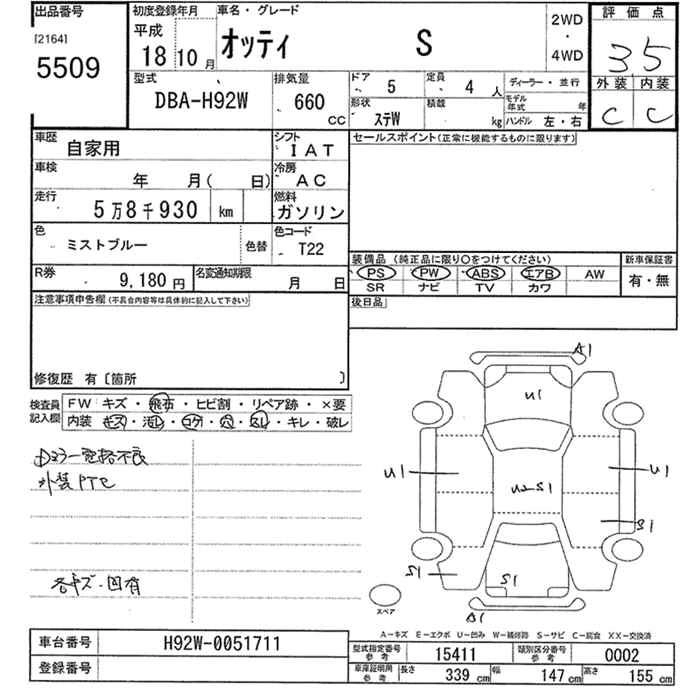 出品番号 初度登録年月 車名・グレード 評価点
[2164] 平成 オッティ S 2WD・4WD 35
5509 18 10月 外装 内装
型式 排気量 ドア 5 定員 4人 ディーラー・並行 C C
DBA-H92W 660 CC 形状 ステW 積載 kg モデル年式 年 ハンドル 左・右
車歴 自家用 シフト IAT セールスポイント(正常に機能するものに限ります)
車検 年 月( 日) 冷房 AC
走行 5万8千930 km 燃料 ガソリン
色 ミストブルー 色替 色コード T22
装備品(純正品に限り〇をつけてください) 新車保証書
R券 9,180円 名変通知期限 月 日 PS PW ABS エアB AW 有・無
SR ナビ TV カワ
注意事項申告欄(不具合内容等は具体的に記入して下さい) 後日品
修復歴 有〔箇所 〕
検査員記入欄 FW キズ・飛石・ヒビ割・リペア跡・×要
内装 キズ・汚レ・コゲ・穴・スレ・キレ・破レ
Dミラー電格不良
外装PTC
各キズ・凹有
A1
U1
U1 U1
U2 S1
S1
S1 S1
A1
スペア
A-キズ E-エクボ U-凹み W-補修跡 S-サビ C-腐食 XX-交換済
車台番号 H92W-0051711 型式指定番号 参考 15411 類別区分番号 参考 0002
登録番号 車庫証明用 参考 長さ 339 cm 幅 147 cm 高さ 155 cm